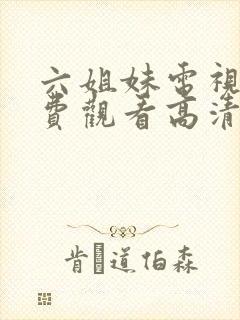 六姐妹電視
費觀看高清
肯道伯森